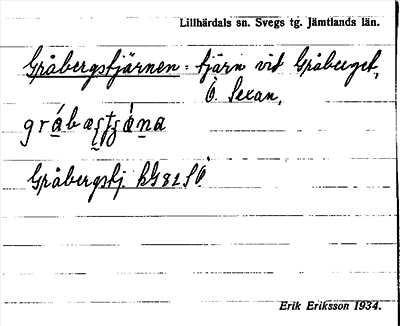 Lillhärdals sn. Svegs tg. Jämtlands län.
Gråbergstjärnen = tjärn vid Gråberget,
Ö. Sexan,
Gråbergstj. kG82SÖ
Erik Eriksson 1934.